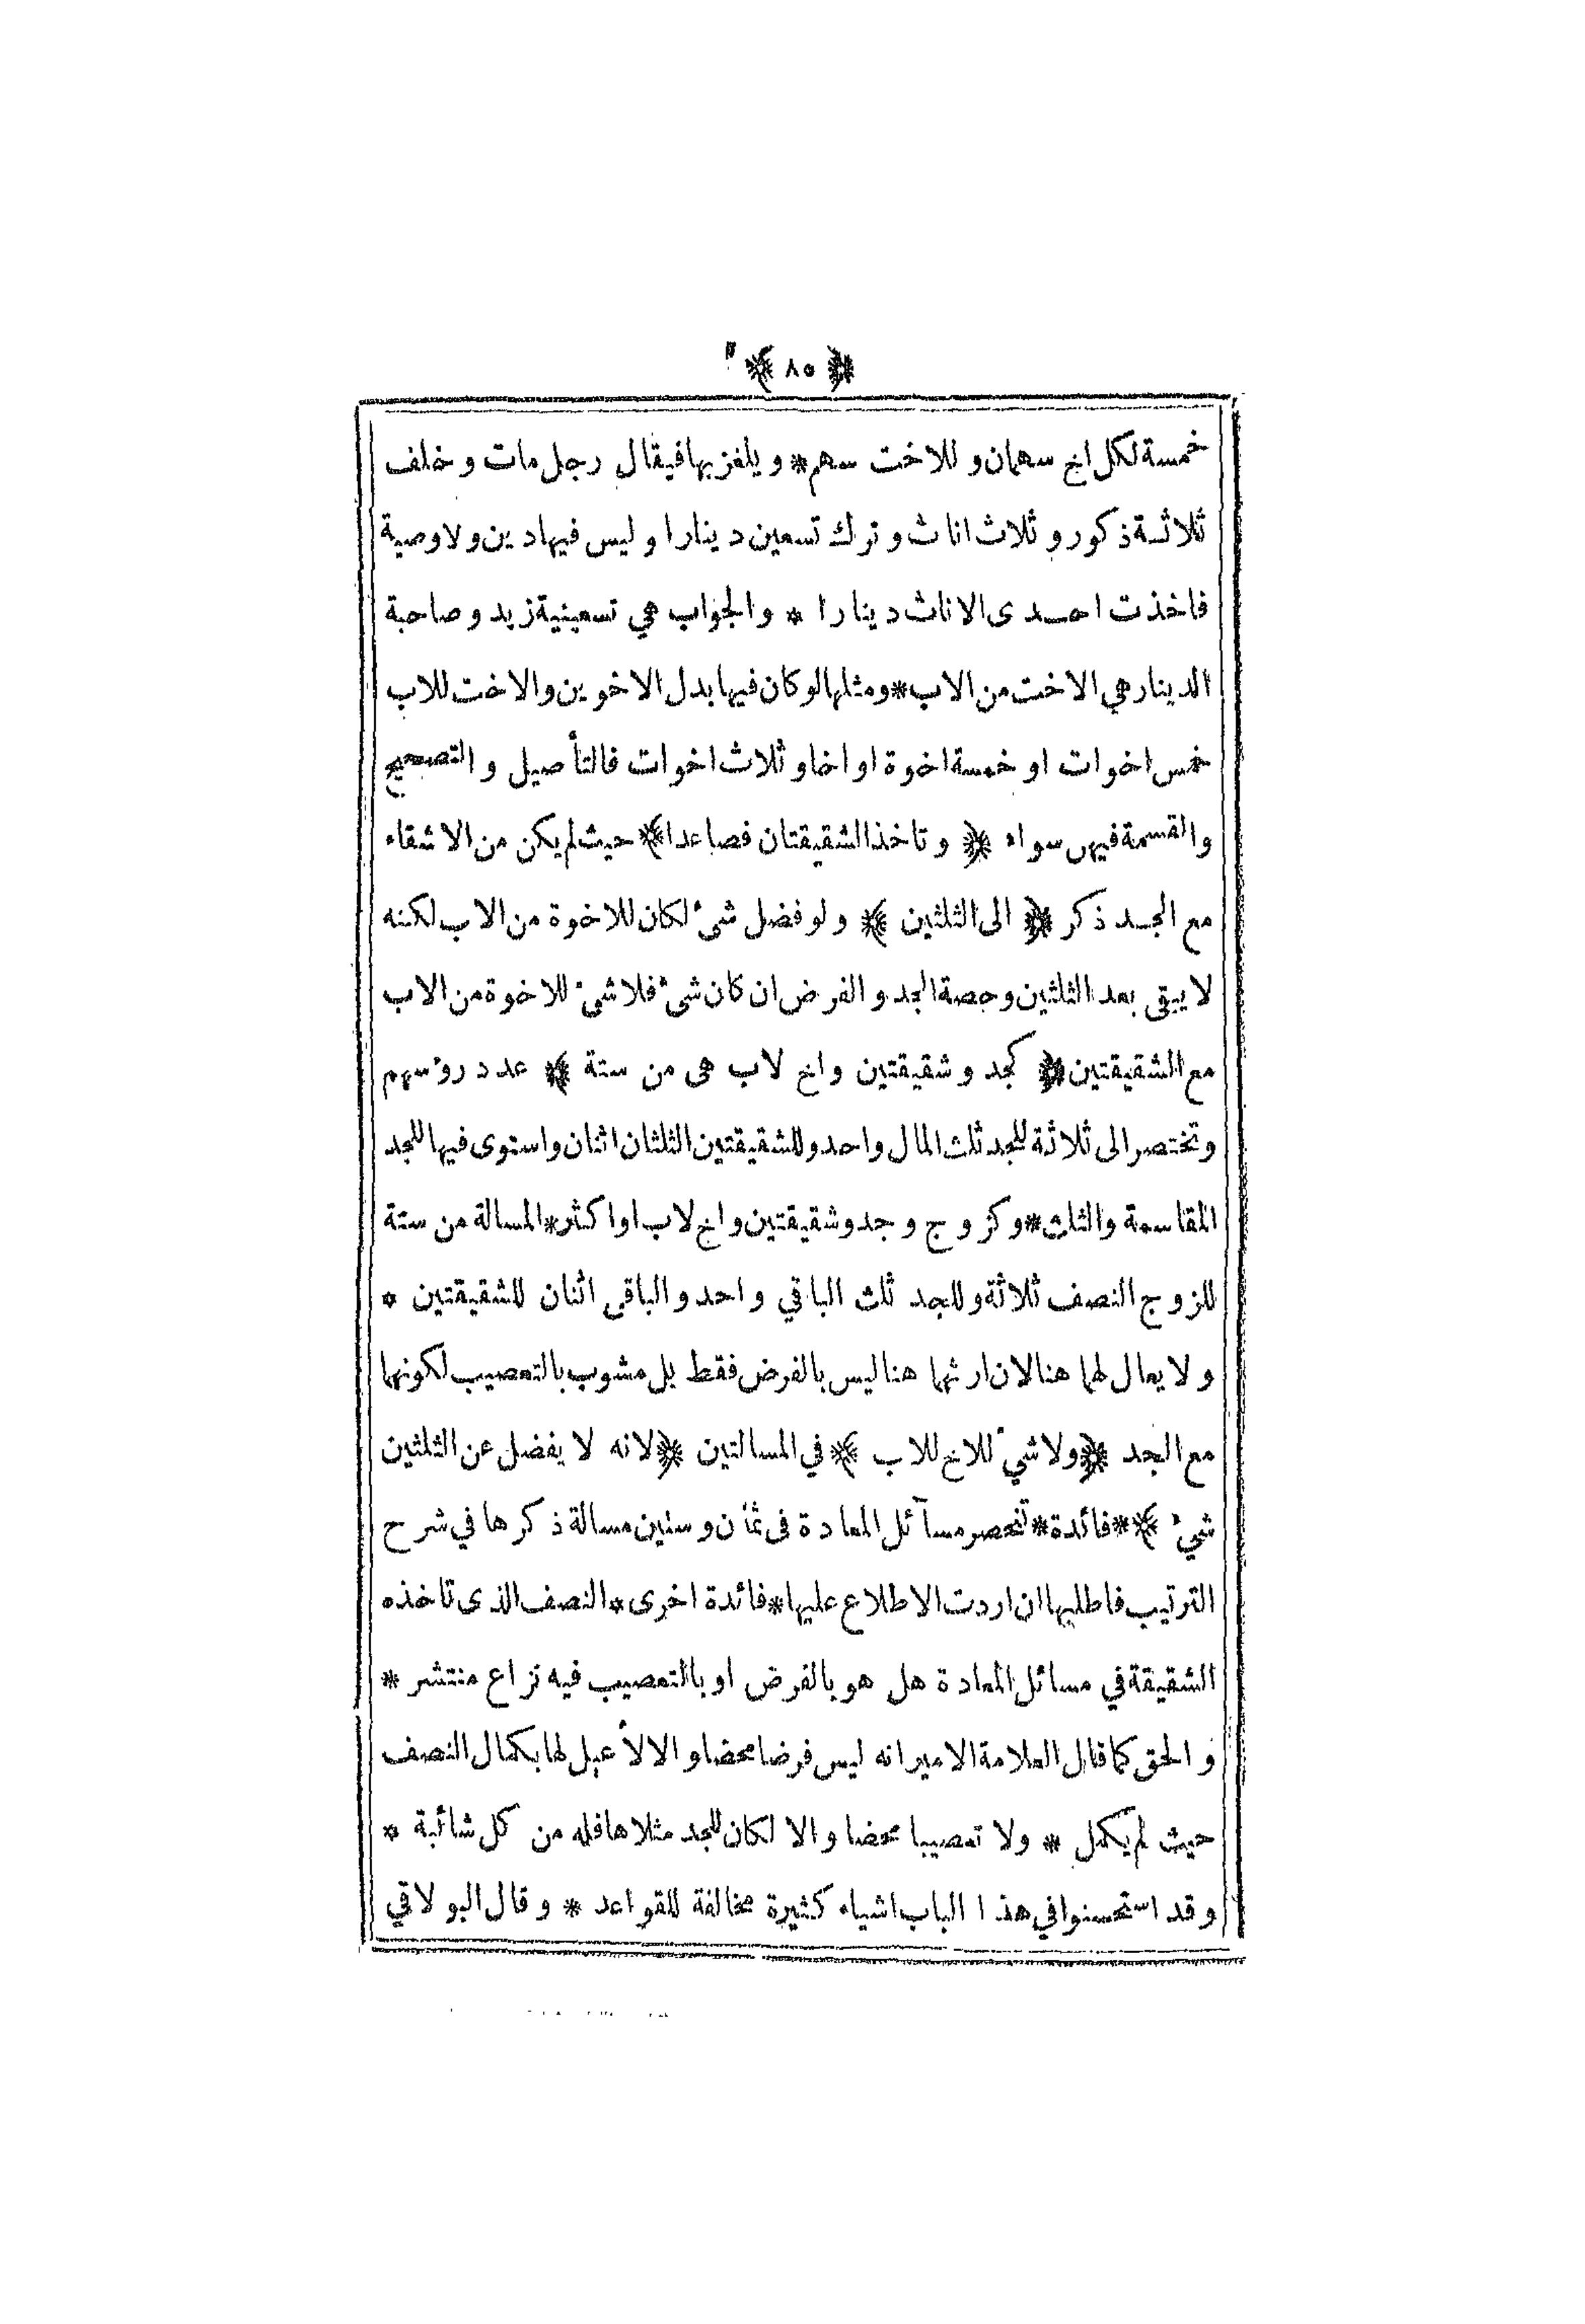 ﴿ ٨٥ ﴾
خمسة لكل اخ سهمان و للاخت سهم * و يلغز بها فيقال رجل مات و خلف
ثلاثة ذكور و ثلاث اناث و ترك تسعين دينارا و ليس فيها دين و لا وصية
فاخذت احدى الاناث دينارا * والجواب هي تسعينية زيد و صاحبة
الدينار هي الاخت من الاب * ومثلها لو كان فيها بدل الاخوين والاخت للاب
خمس اخوات او خمسة اخوة او اخا و ثلاث اخوات فالتأصيل و التصحيح
والقسمة فيهن سواء ﴿ و تاخذ الشقيقتان فصاعدا ﴾ حيث لم يكن من الاشقاء
مع الجد ذكر ﴿ الى الثلثين ﴾ و لو فضل شئ لكان للاخوة من الاب لكنه
لا يبقى بعد الثلثين و حصة الجد و الفرض ان كان شئ فلا شئ للاخوة من الاب
مع الشقيقتين ﴿ كجد و شقيقتين واخ لاب هى من ستة ﴾ عدد رؤسهم
وتختصر الى ثلاثة للجد ثلث المال واحد وللشقيقتين الثلثان اثنان واستوى فيها للجد
المقاسمة والثلث * و كزوج و جد وشقيقتين واخ لاب او اكثر * المسالة من ستة
للزوج النصف ثلاثة وللجد ثلث الباقي واحد و الباقى اثنان للشقيقتين *
و لا يعال لهما هنا لان ارثهما هنا ليس بالفرض فقط بل مشوب بالتعصيب لكونهما
مع الجد ﴿ ولا شئ للاخ للاب ﴾ في المسالتين ﴿ لانه لا يفضل عن الثلثين
شئ ﴾ * فائدة * تنحصر مسآئل المعادة فى ثمان و ستين مسالة ذكرها في شرح
الترتيب فاطلبها ان اردت الاطلاع عليها * فائدة اخرى * النصف الذى تاخذه
الشقيقة في مسائل المعادة هل هو بالفرض او بالتعصيب فيه نزاع منتشر *
و الحق كما قال العلامة الامير انه ليس فرضا محضا و الا لأعيل لها بكمال النصف
حيث لم يكمل * ولا تعصيبا محضا والا لكان للجد مثلاها فله من كل شائبة *
و قد استحسنوا في هذا الباب اشياء كثيرة مخالفة للقواعد * و قال البولاقي